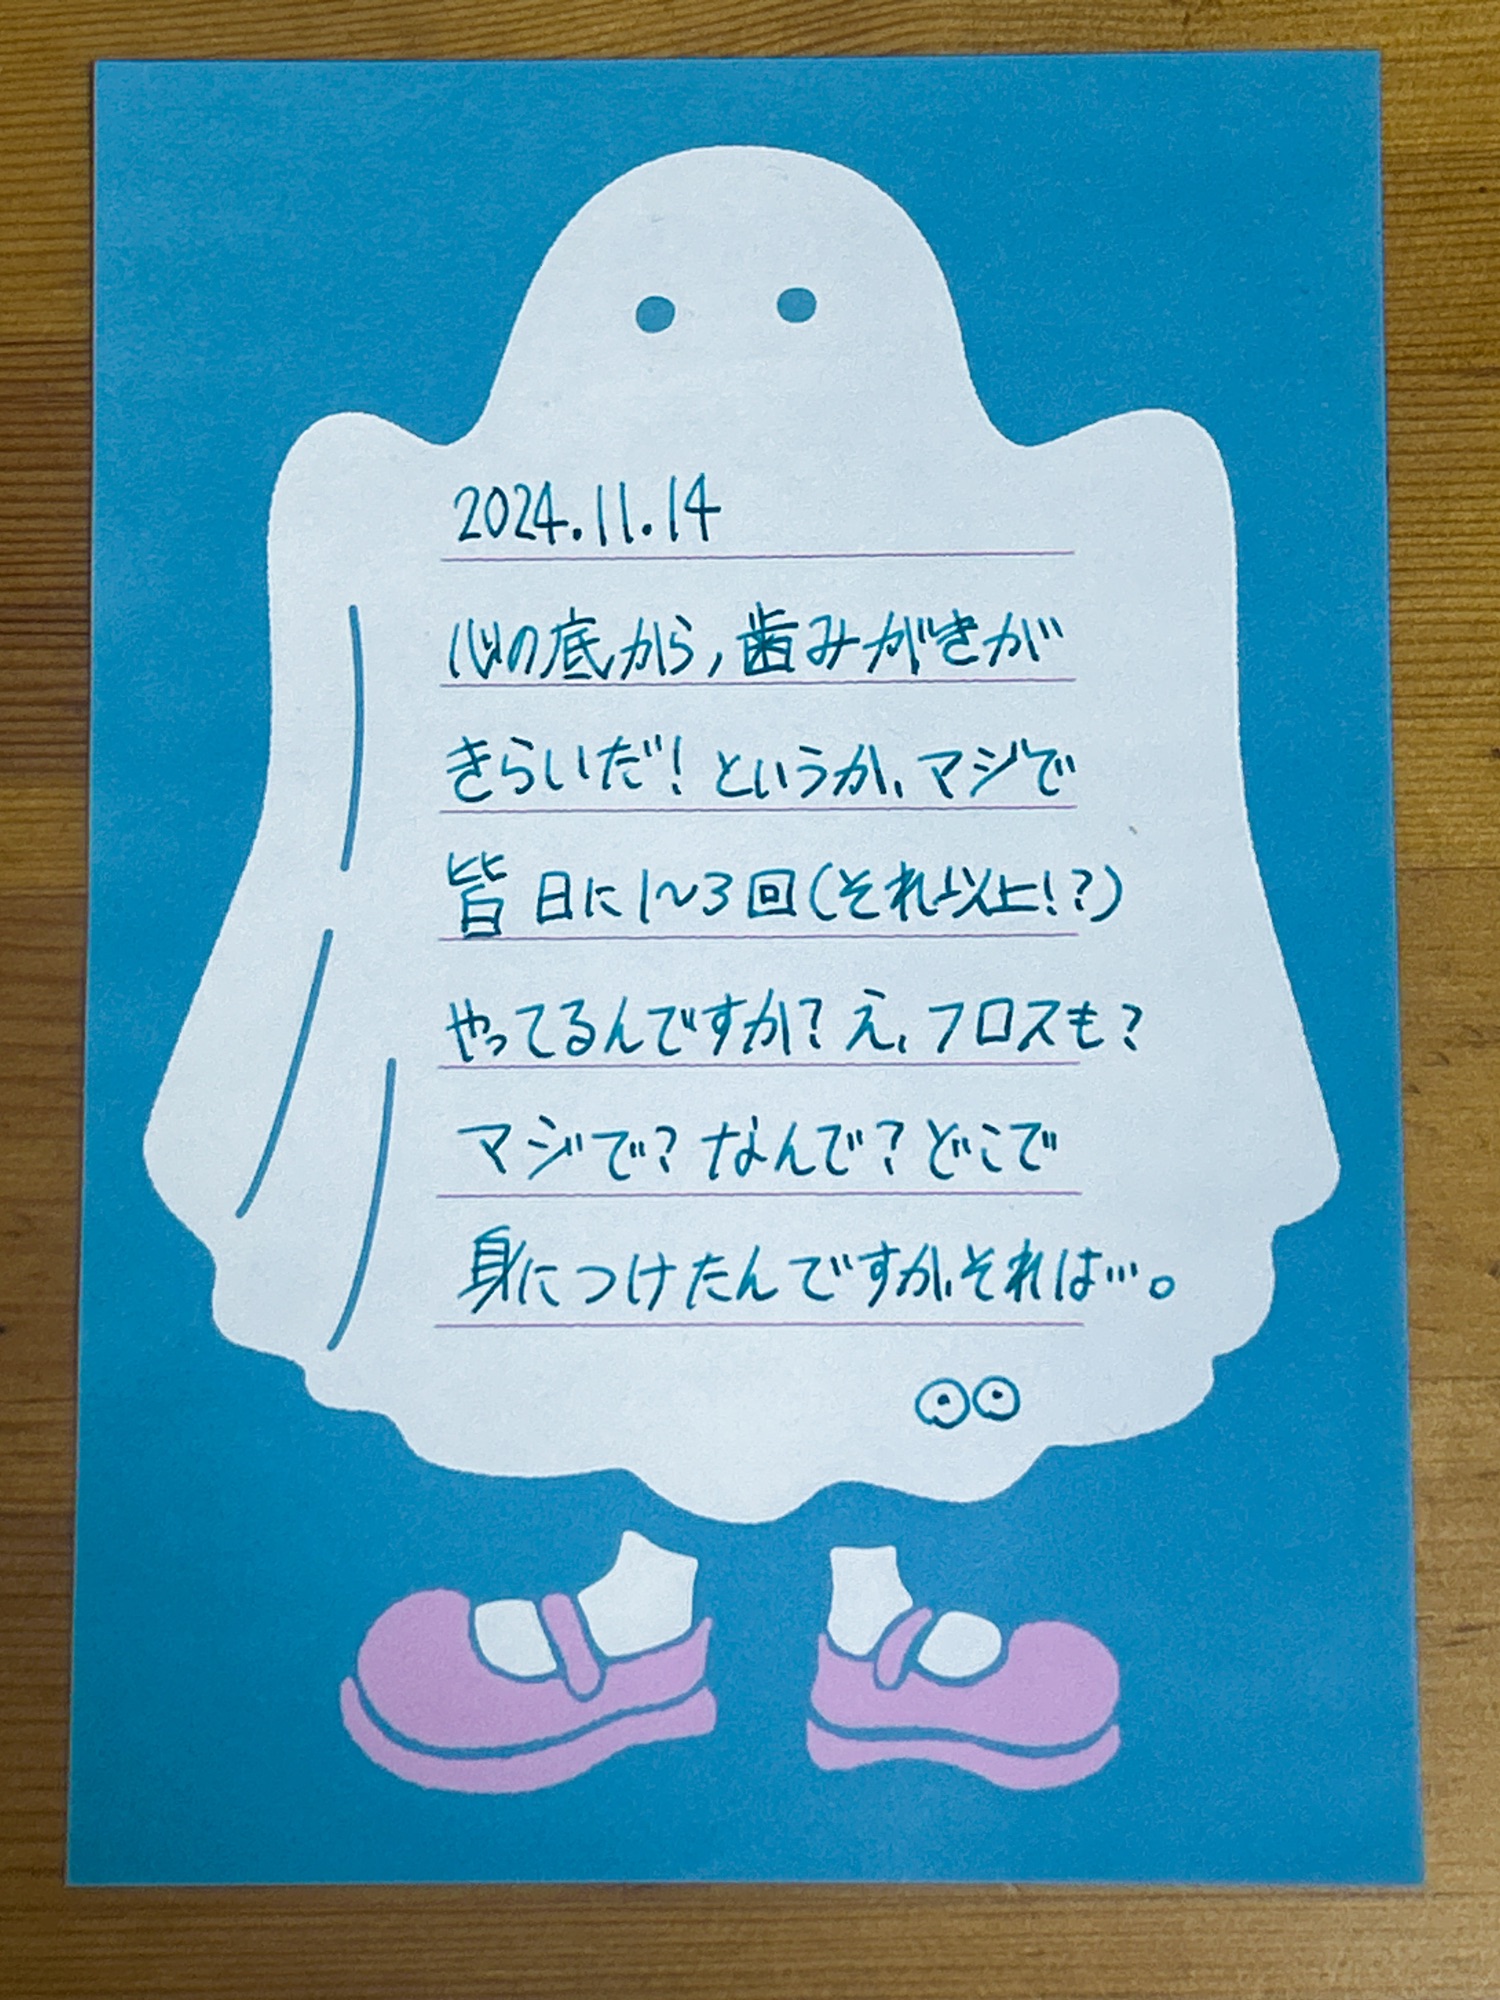 2024.11.14
心の底から,歯みがきが
きらいだ!というか、マジで
皆日に1~3回(それ以上!?)
やってるんですか?え、フロスも?
マジで?なんで?どこで
身につけたんですか、それは…。